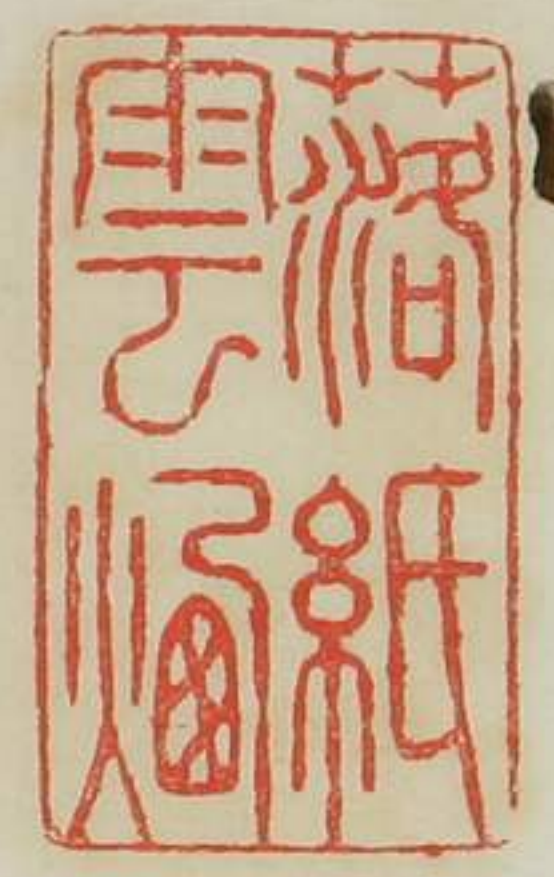 落紙
雲煙